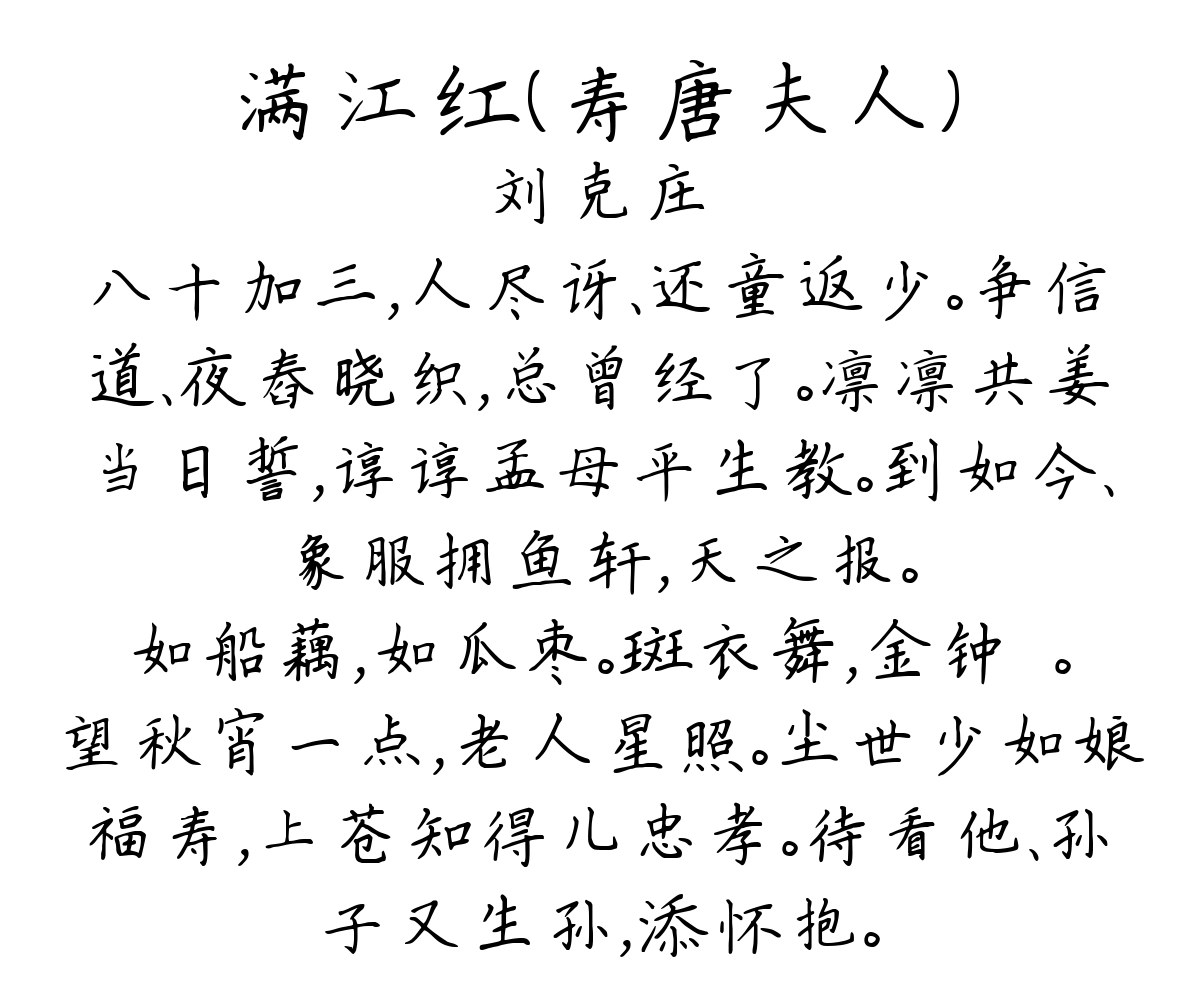 满江红(寿唐夫人)
刘克庄
八十加三,人尽讶、还童返少。争信
道、夜舂晓织,总曾经了。凛凛共姜
当日誓,谆谆孟母平生教。到如今、
象服拥鱼轩,天之报。
如船藕,如瓜枣。斑衣舞,金钟 。
望秋宵一点,老人星照。尘世少如娘
福寿,上苍知得儿忠孝。待看他、孙
子又生孙,添怀抱。